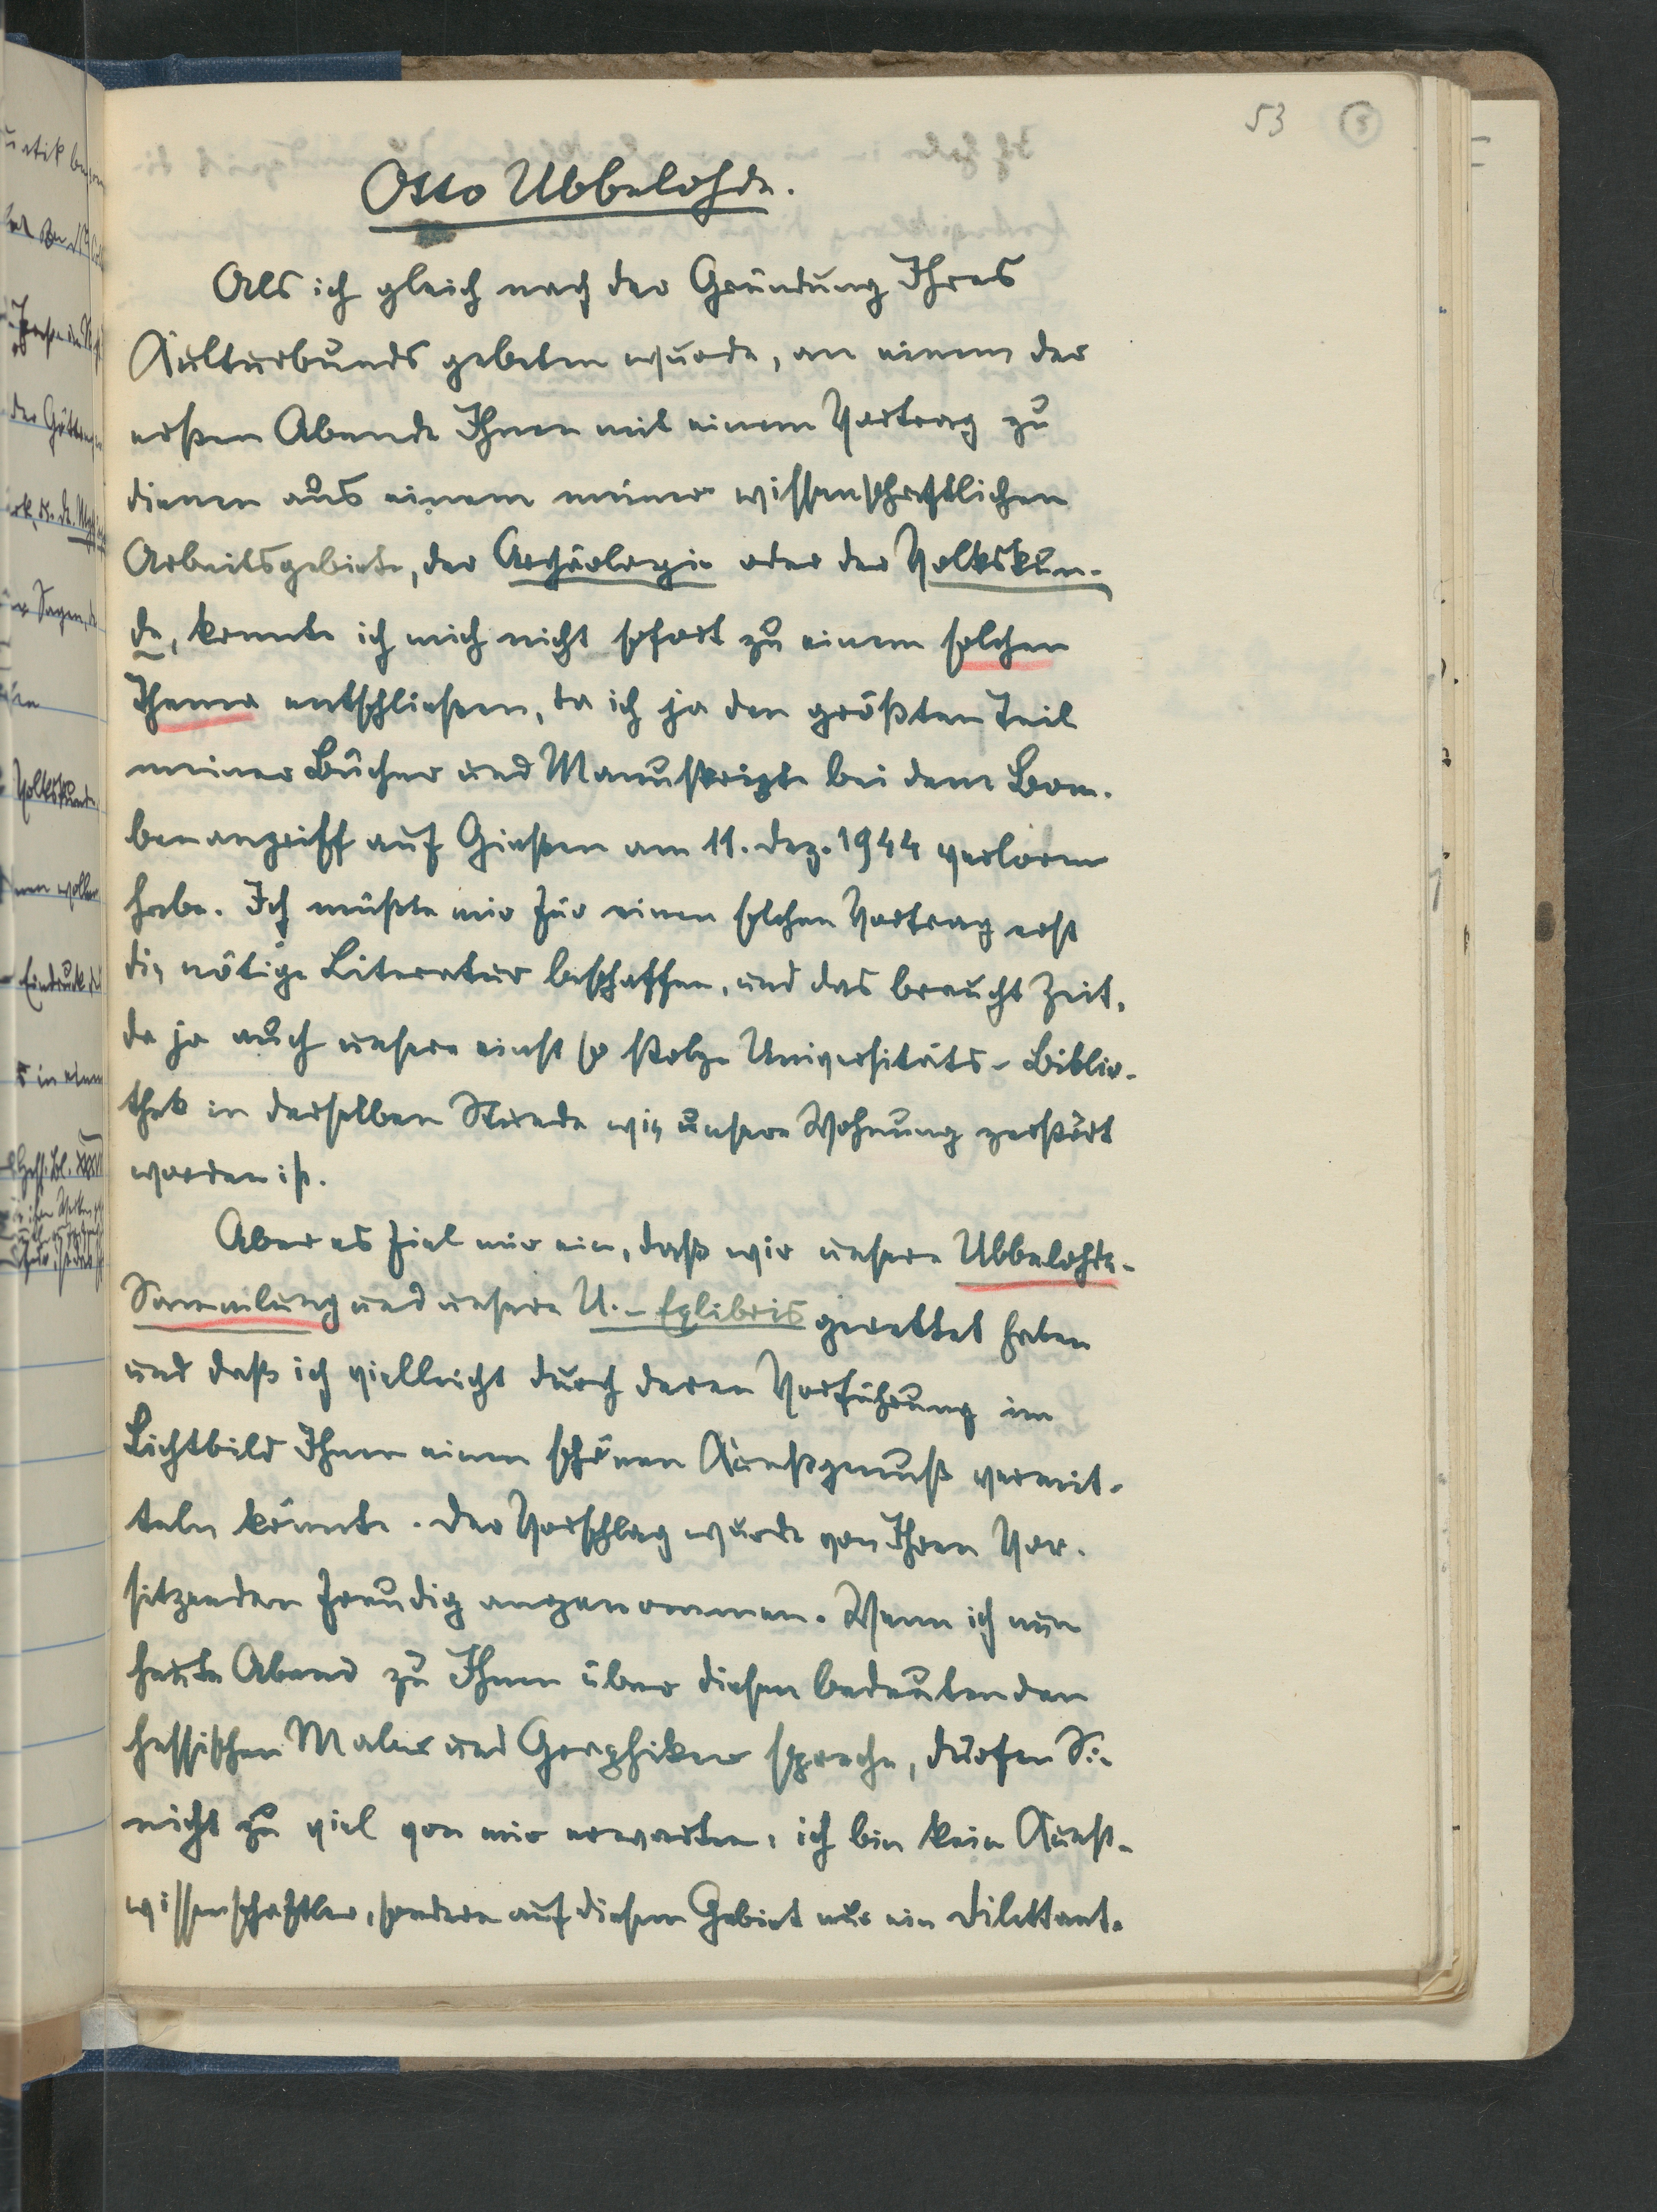 53
Otto Ubbelohde.
Als ich gleich nach der Gründung Ihres
Kulturbunds gebeten wurde, an einem der
ersten Abende Ihnen mit einem Vortrag zu
dienen aus einem meiner wissenschaftlichen
Arbeitsgebiete, der Archäologie oder der Volkskun-
de, konnte ich mich nicht sofort zu einem solchen
Thema entschließen, da ich ja den größten Teil
meiner Bücher und Manuskripte bei dem Bom-
benangriff auf Gießen am 11. Dez. 1944 verloren
habe. Ich müßte mir für einen solchen Vortrag erst
die nötige Literatur beschaffen, und das braucht Zeit,
da ja auch unsere einst so stolze Universitäts-Biblio-
thek in derselben Stunde wie unsere Wohnung zerstört
worden ist.
Aber es fiel mir ein, daß wir unsere Ubbelohde-
Sammlung und unsere U.-Exlibris gerettet haben
und daß ich vielleicht durch deren Vorführung im
Lichtbild Ihnen einen schönen Kunstgenuß vermit-
teln könnte. Der Vorschlag wurde von Ihren Vor-
sitzenden freudig angenommen. Wenn ich nun
heute Abend zu Ihnen über diesen bedeutenden
hessischen Maler und Graphiker spreche, dürfen Sie
nicht zu viel von mir erwarten, ich bin kein Kunst-
wissenschaftler, sondern auf diesem Gebiet nur ein Dilettant.